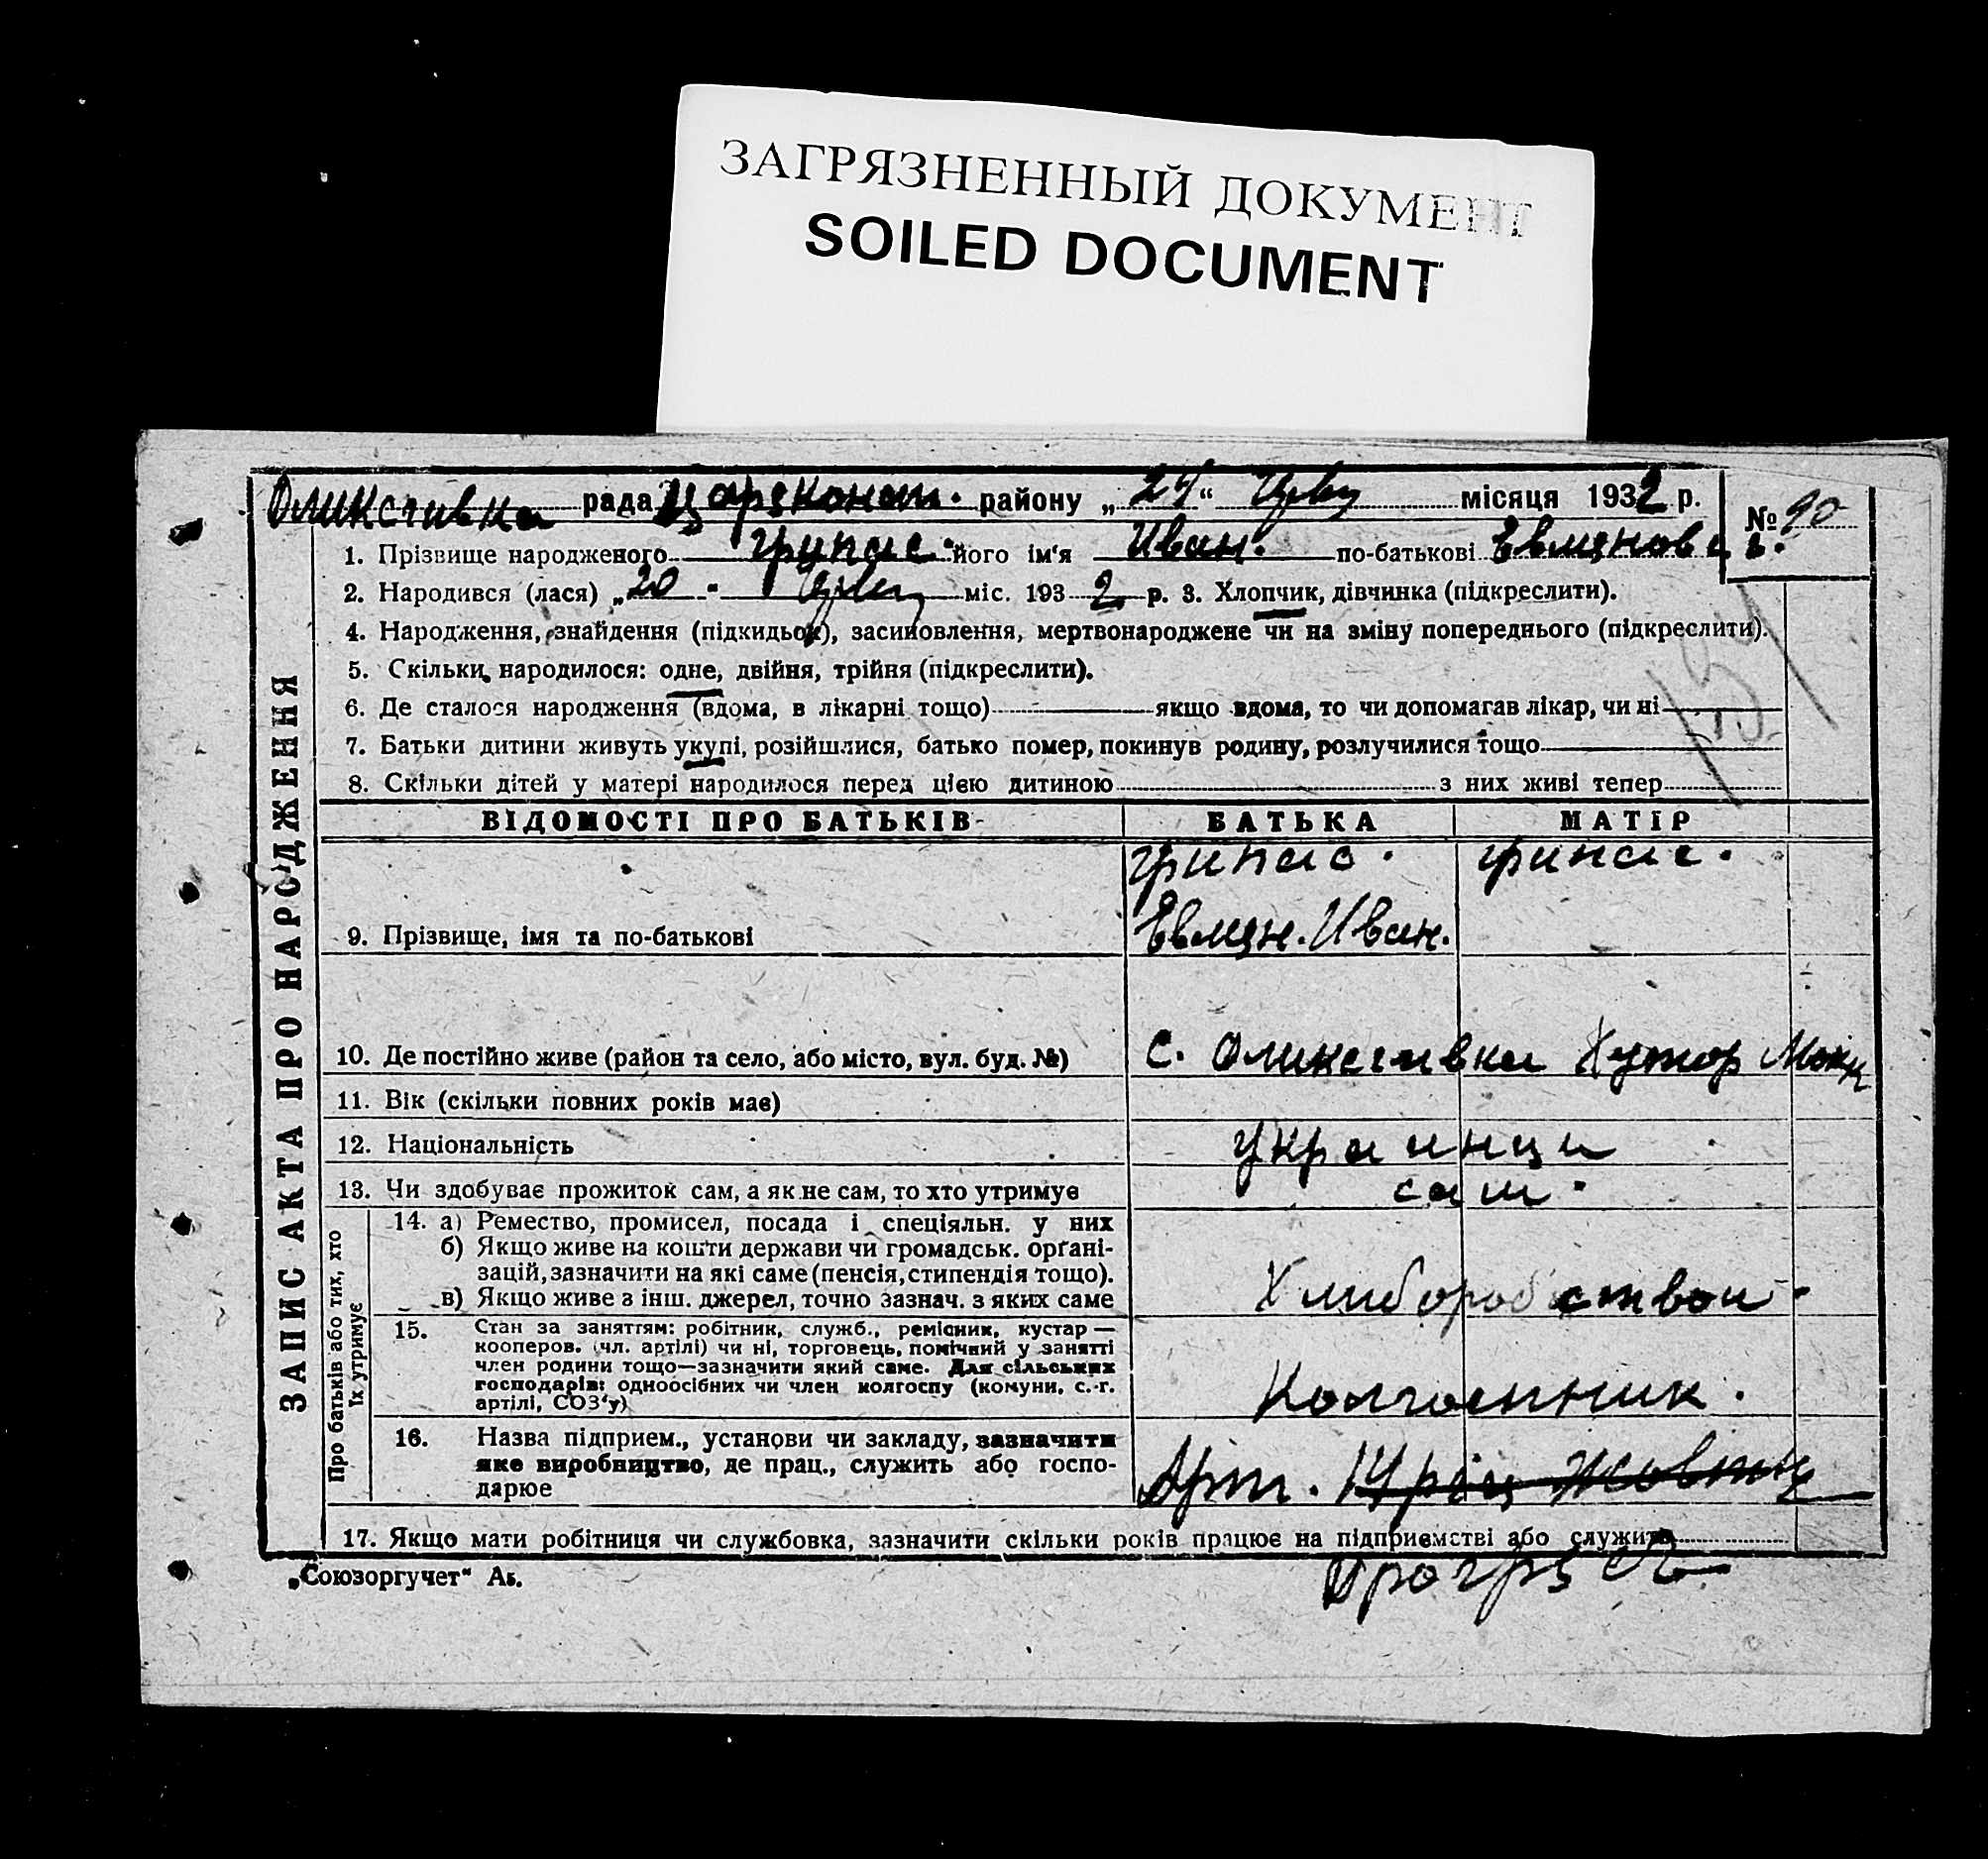 ЗАГРЯЗНЕННЫЙ ДОКУМЕНТ
SOILED DOCUMENT
Оликсгивка рада Царекопат. району „24“ місяця 1932 р. № 90
1. Прізвище народженого Грипас. його ім'я Иван. по-батькові
2. Народився (лася) „20 - міс. 1932 р. 3. Хлопчик, дівчинка (підкреслити).
4. Народження, знайдення (підкидьок), засиновлення, мертвонароджене чи на зміну попереднього (підкреслити).
5. Скільки народилося: одне, двійня, трійня (підкреслити).
6. Де сталося народження (вдома, в лікарні тощо) якщо вдома, то чи допомагав лікар, чи ні
7. Батьки дитини живуть укупі, розійшлися, батько помер, покинув родину, розлучилися тощо
8. Скільки дітей у матері народилося перед цією дитиною з них живі тепер
ЗАПИС АКТА ПРО НАРОДЖЕННЯ
ВІДОМОСТІ ПРО БАТЬКІВ БАТЬКА МАТІР
Грипас. Грипас.
9. Прізвище, імя та по-батькові Иван.
10. Де постійно живе (район та село, або місто, вул. буд. №) С. Оликсгивка Хутор
11. Вік (скільки повних років має)
12. Національність украинци
13. Чи здобуває прожиток сам, а як не сам, то хто утримує сам.
Про батьків або тих, хто
їх утримує
14. а) Ремество, промисел, посада і спеціяльн. у них
б) Якщо живе на кошти держави чи громадськ. орґані-
зацій, зазначити на які саме (пенсія, стипендія тощо).
в) Якщо живе з інш. джерел, точно зазнач. з яких саме Хлибороб
15. Стан за заняттям: робітник, служб., ремісник, кустар —
кооперов. (чл. артілі) чи ні, торговець, помічний у занятті
член родини тощо—зазначити який саме. Для сільських
господарів: одноосібних чи член колгоспу (комуни, с.-г.
артілі, СОЗ'у) Колгоспник.
16. Назва підприєм., установи чи закладу, зазначити
яке виробництво, де прац., служить або госпо-
дарює Арт.
17. Якщо мати робітниця чи службовка, зазначити скільки років працює на підприємстві або служить
„Союзоргучет“ Аз.